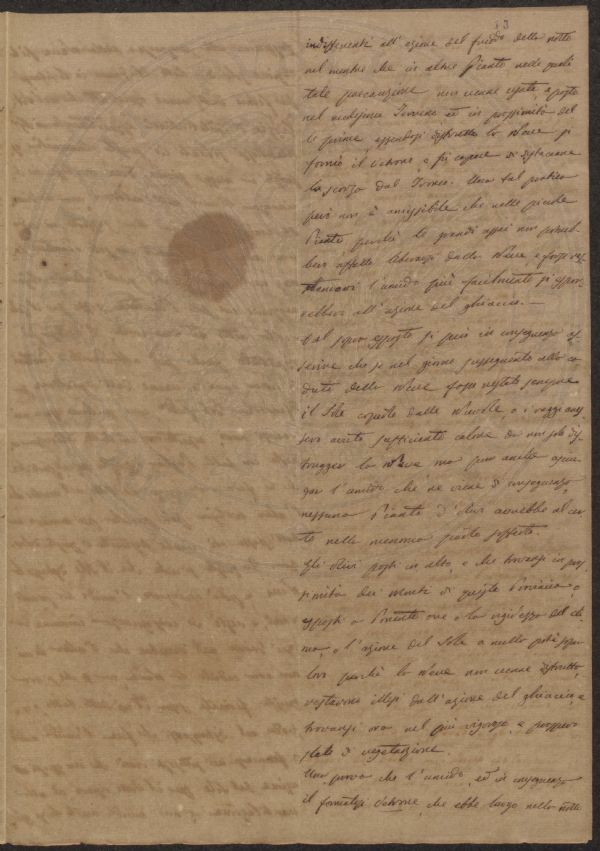 indifferenti all'azione del freddo della notte
nel mentre che in altre Piante nelle quali
tale precauzione non venne usata, e poste
nel medesimo Terreno ed in prossimità del
le prime essendosi distrutta la Neve si
formò il Vetrone, e fù capace di distaccare
la scorza dal Tronco. Una tal pratica
però non è amissibile che nelle piccole
Piante perchè le grandi assai non potreb
bero affatto liberarsi dalla Neve, e forse
l'umido più facilmente si espor
rebbero all'azione del ghiaccio. —
Dal sopra esposto si può in conseguenza as
serire che se nel giorno susseguente alla ca
duta della Neve fosse restato sempre
il Sole coperto dalle Nuvole, o i raggi aves
sero avuto sufficiente calore da non solo dis
truggere la Neve ma pur anche asciu
gar l'umido, che ne viene di conseguenza,
nessuna Pianta d'Olivi avrebbe al cer
to nella menoma parte sofferto.
Gli Olivi posti in alto, e che trovansi in pros
simità dei Monti di questa Provincia, o
esposti a Ponente ove o la rigidezza del cli
ma, o l'azione del Sole a nulla potè
loro perchè la Neve non venne distrutta,
restarono illesi dall'azione del ghiaccio, e
trovansi ora nel più vigoroso, e prospero
stato di vegetazione.
Una prova che l'umido, ed in conseguenza
il formatosi Vetrone, che ebbe luogo nella notte